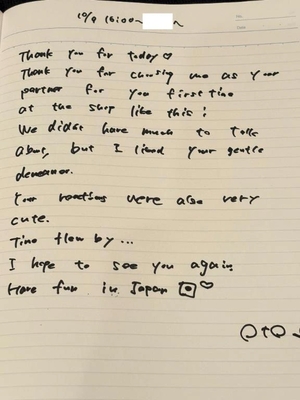 10/9 16:00~
Thank you for today♡
Thank you for choosing me as your
partner for you first time
at the shop like this!
We didnt have much to talk
about, but I liked your gentle
demeanor.
Your reactions were also very
cute.
Time flew by...
I hope to see you again
Have fun in Japan 🇯🇵♡